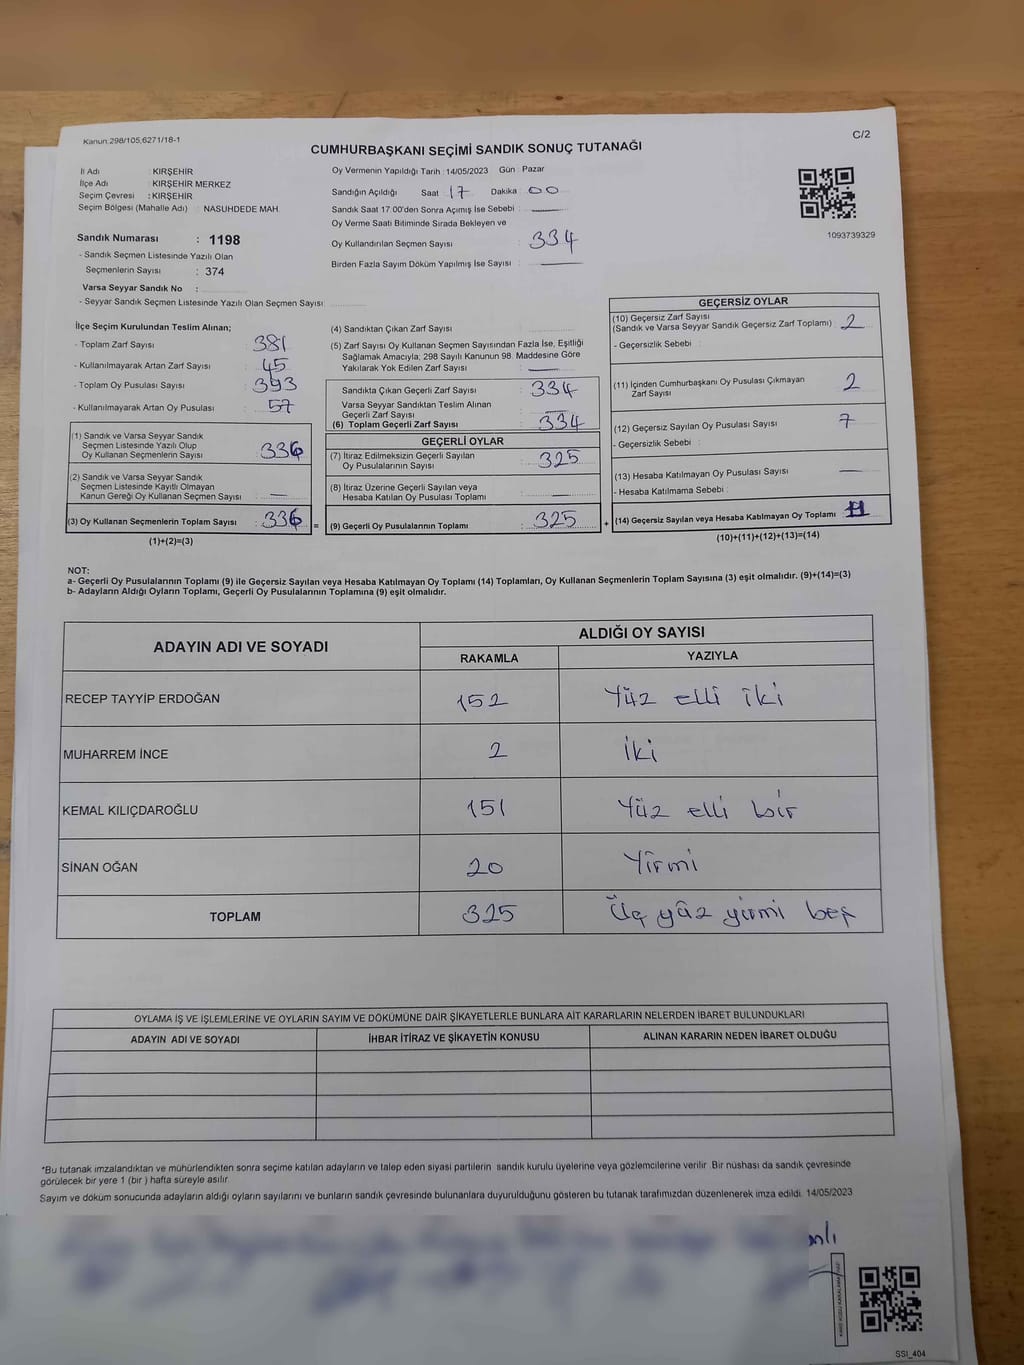 Kanun:298/105,6271/18-1
C/2
CUMHURBAŞKANI SEÇİMİ SANDIK SONUÇ TUTANAĞI
İl Adı : KIRŞEHİR
İlçe Adı : KIRŞEHİR MERKEZ
Seçim Çevresi : KIRŞEHİR
Seçim Bölgesi (Mahalle Adı) : NASUHDEDE MAH.
Sandık Numarası : 1198
- Sandık Seçmen Listesinde Yazılı Olan
Seçmenlerin Sayısı : 374
Varsa Seyyar Sandık No :
- Seyyar Sandık Seçmen Listesinde Yazılı Olan Seçmen Sayısı:
Oy Vermenin Yapıldığı Tarih :14/05/2023 Gün : Pazar
Sandığın Açıldığı Saat 17 Dakika : 00
Sandık Saat 17.00'den Sonra Açımış İse Sebebi : —
Oy Verme Saati Bitiminde Sırada Bekleyen ve
Oy Kullandırılan Seçmen Sayısı : 334
Birden Fazla Sayım Döküm Yapılmış İse Sayısı : —
1093739329
İlçe Seçim Kurulundan Teslim Alınan;
- Toplam Zarf Sayısı : 381
- Kullanılmayarak Artan Zarf Sayısı : 45
- Toplam Oy Pusulası Sayısı : 393
- Kullanılmayarak Artan Oy Pusulası : 57
(1) Sandık ve Varsa Seyyar Sandık
Seçmen Listesinde Yazılı Olup
Oy Kullanan Seçmenlerin Sayısı : 336
(2) Sandık ve Varsa Seyyar Sandık
Seçmen Listesinde Kayıtlı Olmayan
Kanun Gereği Oy Kullanan Seçmen Sayısı : —
(3) Oy Kullanan Seçmenlerin Toplam Sayısı : 336
(1)+(2)=(3)
(4) Sandıktan Çıkan Zarf Sayısı :
(5) Zarf Sayısı Oy Kullanan Seçmen Sayısından Fazla İse, Eşitliği
Sağlamak Amacıyla; 298 Sayılı Kanunun 98. Maddesine Göre
Yakılarak Yok Edilen Zarf Sayısı : —
Sandıkta Çıkan Geçerli Zarf Sayısı : 334
Varsa Seyyar Sandıktan Teslim Alınan
Geçerli Zarf Sayısı : —
(6) Toplam Geçerli Zarf Sayısı : 334
GEÇERLİ OYLAR
(7) İtiraz Edilmeksizin Geçerli Sayılan
Oy Pusulalarının Sayısı : 325
(8) İtiraz Üzerine Geçerli Sayılan veya
Hesaba Katılan Oy Pusulası Toplamı : —
= (9) Geçerli Oy Pusulalarının Toplamı : 325 +
GEÇERSİZ OYLAR
(10) Geçersiz Zarf Sayısı
(Sandık ve Varsa Seyyar Sandık Geçersiz Zarf Toplamı) : 2
- Geçersizlik Sebebi :
(11) İçinden Cumhurbaşkanı Oy Pusulası Çıkmayan
Zarf Sayısı : 2
(12) Geçersiz Sayılan Oy Pusulası Sayısı : 7
- Geçersizlik Sebebi :
(13) Hesaba Katılmayan Oy Pusulası Sayısı : —
- Hesaba Katılmama Sebebi :
(14) Geçersiz Sayılan veya Hesaba Katılmayan Oy Toplamı : 11
(10)+(11)+(12)+(13)=(14)
NOT:
a- Geçerli Oy Pusulalarının Toplamı (9) ile Geçersiz Sayılan veya Hesaba Katılmayan Oy Toplamı (14) Toplamları, Oy Kullanan Seçmenlerin Toplam Sayısına (3) eşit olmalıdır. (9)+(14)=(3)
b- Adayların Aldığı Oyların Toplamı, Geçerli Oy Pusulalarının Toplamına (9) eşit olmalıdır.
ADAYIN ADI VE SOYADI ALDIĞI OY SAYISI
RAKAMLA YAZIYLA
RECEP TAYYİP ERDOĞAN 152 Yüz elli iki
MUHARREM İNCE 2 iki
KEMAL KILIÇDAROĞLU 151 Yüz elli bir
SİNAN OĞAN 20 Yirmi
TOPLAM 325 Üç yüz yirmi beş
OYLAMA İŞ VE İŞLEMLERİNE VE OYLARIN SAYIM VE DÖKÜMÜNE DAİR ŞİKAYETLERLE BUNLARA AİT KARARLARIN NELERDEN İBARET BULUNDUKLARI
ADAYIN ADI VE SOYADI İHBAR İTİRAZ VE ŞİKAYETİN KONUSU ALINAN KARARIN NEDEN İBARET OLDUĞU
*Bu tutanak imzalandıktan ve mühürlendikten sonra seçime katılan adayların ve talep eden siyasi partilerin sandık kurulu üyelerine veya gözlemcilerine verilir. Bir nüshası da sandık çevresinde
görülecek bir yere 1 (bir ) hafta süreyle asılır.
Sayım ve döküm sonucunda adayların aldığı oyların sayılarını ve bunların sandık çevresinde bulunanlara duyurulduğunu gösteren bu tutanak tarafımızdan düzenlenerek imza edildi. 14/05/2023
SSI_404